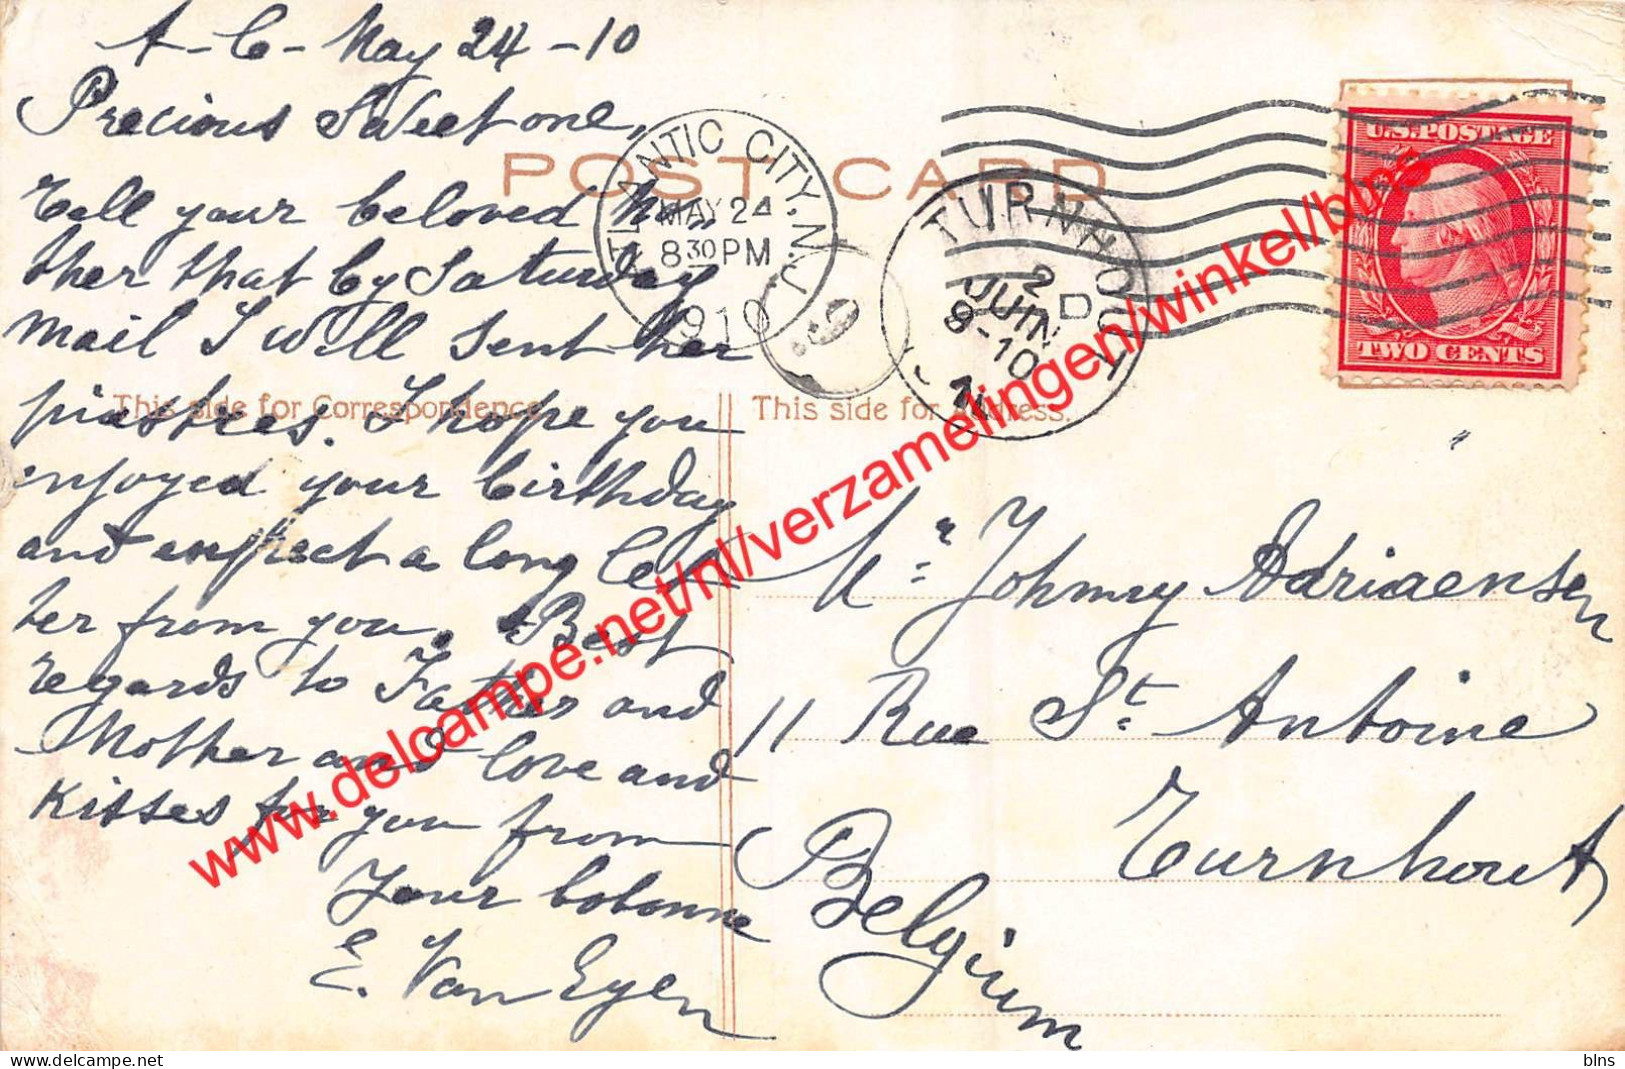 A-C- May 24-10
Precious Sweet one,
Tell your beloved Mo
ther that by Saturday
mail I will sent her
piastres. I hope you
enjoyed your birthday
and expect a long let
ter from you. Best
regards to Father and
Mother and love and
Kisses for you from
Your bobonne
E. Van Eyen
POST CARD
This side for Correspondence.
This side for Address.
ATLANTIC CITY, N.J.
MAY 24
8 30 PM
1910
TURNHOUT
2
JUIN
8-10
D
U.S. POSTAGE
TWO CENTS
Mr. Johnny Adriaensen
11 Rue St. Antoine
Turnhout
Belgium
www.delcampe.net/nl/verzamelingen/winkel/blns
blns